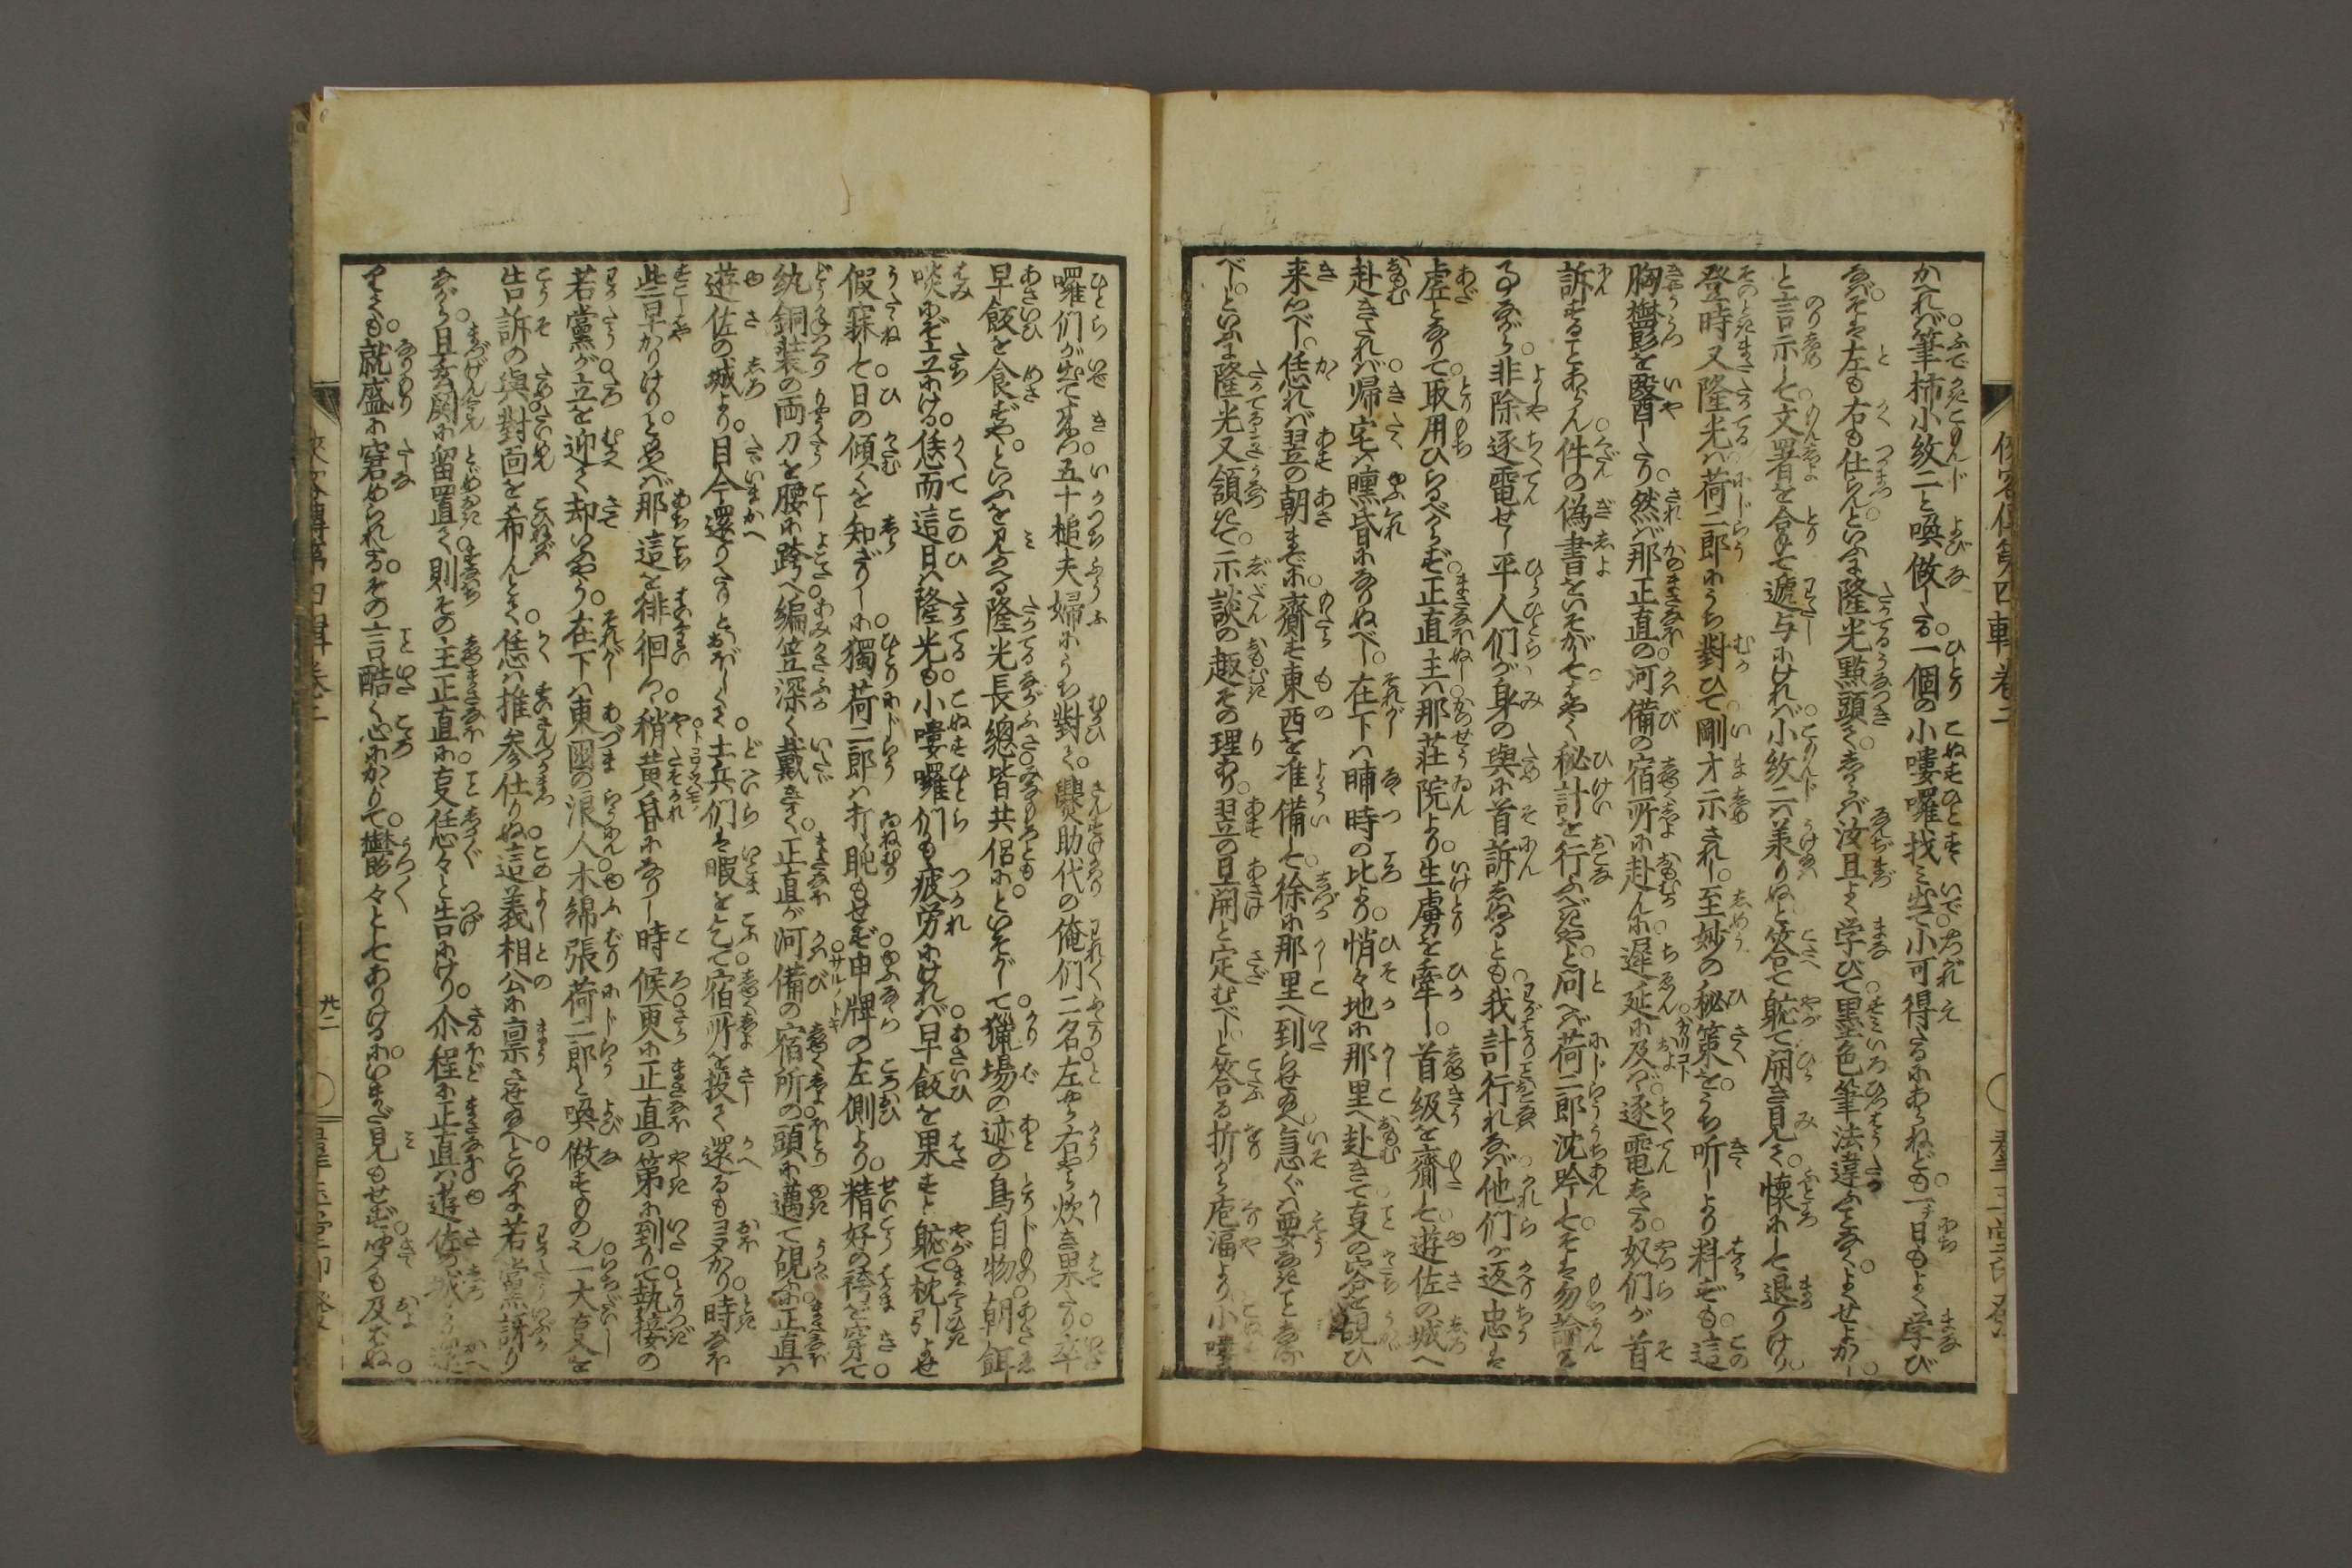 俠客傳第四輯卷二
かへれば筆柿小紋二と喚做したる。一個の小嘍囉找み出て小可得たるにあらねども。一日もよく学び
なばそは左も右も仕らんといふに隆光點頭て。しからば汝且よく学びて黒色筆法違ふことなく。よくせよかし。
と言示して文署を合して遞与にければ。小紋二は兼りぬと答て軈て開き見て。懐にして退りけり。
登時又隆光は荷二郎にうち對ひて剛才示されし。至妙の秘策を。うち听しより料ずも。這
胸鬱影を醫したり。然ば那正直の河備の宿所に赴んに。遲延に及ばゞ。逐電したる。奴們が首
訴することあらん。件の偽書をいそがして。はやく秘計を行ふべきやと。問へば荷二郎沈吟して。そは勿論の
事ながら。非除逐電せし平人們が身の與に首訴しぬるとも。我計行れなば他們が返忠は
虚となりて。取用ひらるべからず。正直主は那莊院より。生虜を牽し。首級を齎して遊佐の城へ
赴きたれば。帰宅は曛昏になりぬべし。在下は晡時の比より。悄々地に那里へ赴きて。事の容を覘ひ
来ぬべし。恁れば翌の朝までに。齎す東西を准備して。徐に那里へ到らせ給へ。急ぐは要なきことなる
べし。といふに隆光又頷きて。示談の趣その理あり。翌の旦開と定むべし。と答る折から庖湢より。小嘍
囉們が出て来つ。五十槌夫婦にうち對て。爨助代の俺們二名。左やら右やら炊き果たり。卒
早飯を食ずや。といふを見かへる隆光長總。皆共侶にといそがして。獵場の迹の鳥自物。朝餌
啖にぞ立にける。恁而這日は隆光も。小嘍囉們も疲労にければ。早飯を果すと軈て枕引よせ
假寐して。日の傾くを知ざりしに。獨荷二郎は打盹もせず。申牌の左側より。精好の袴を穿て
紈銅装の両刀を腰に跨へ。編笠深く戴きて。正直が河備の宿所の頭に邁て覘ふに。正直は
遊佐の城より。目今還りたりとおぼしくて。士兵們は暇を乞て。宿所を投て還るもヨヲかり。時なほ
些早かりけり。と思へば那這を徘徊つ。稍黄昏になりし時候。更に正直の第に到りて。執接の
若黨が。立を迎て却いふやう。在下は東國の浪人木綿張荷二郎と喚做すもの也。一大事を
告訴の與。對面を希んとて。恁は推參仕りぬ。這義相公に禀させ給へ。といふに若黨訝り
ながら。且玄關に留置て。則その主正直に。事恁々と告にけり。尒程に正直は遊佐の城より還
りても。就盛に窘められたる。その言酷く心にかゝりて。鬱々としてありけるに。いまだ見もせず。名も及ばぬ
俠客傳第四輯卷二
廿二
群玉堂